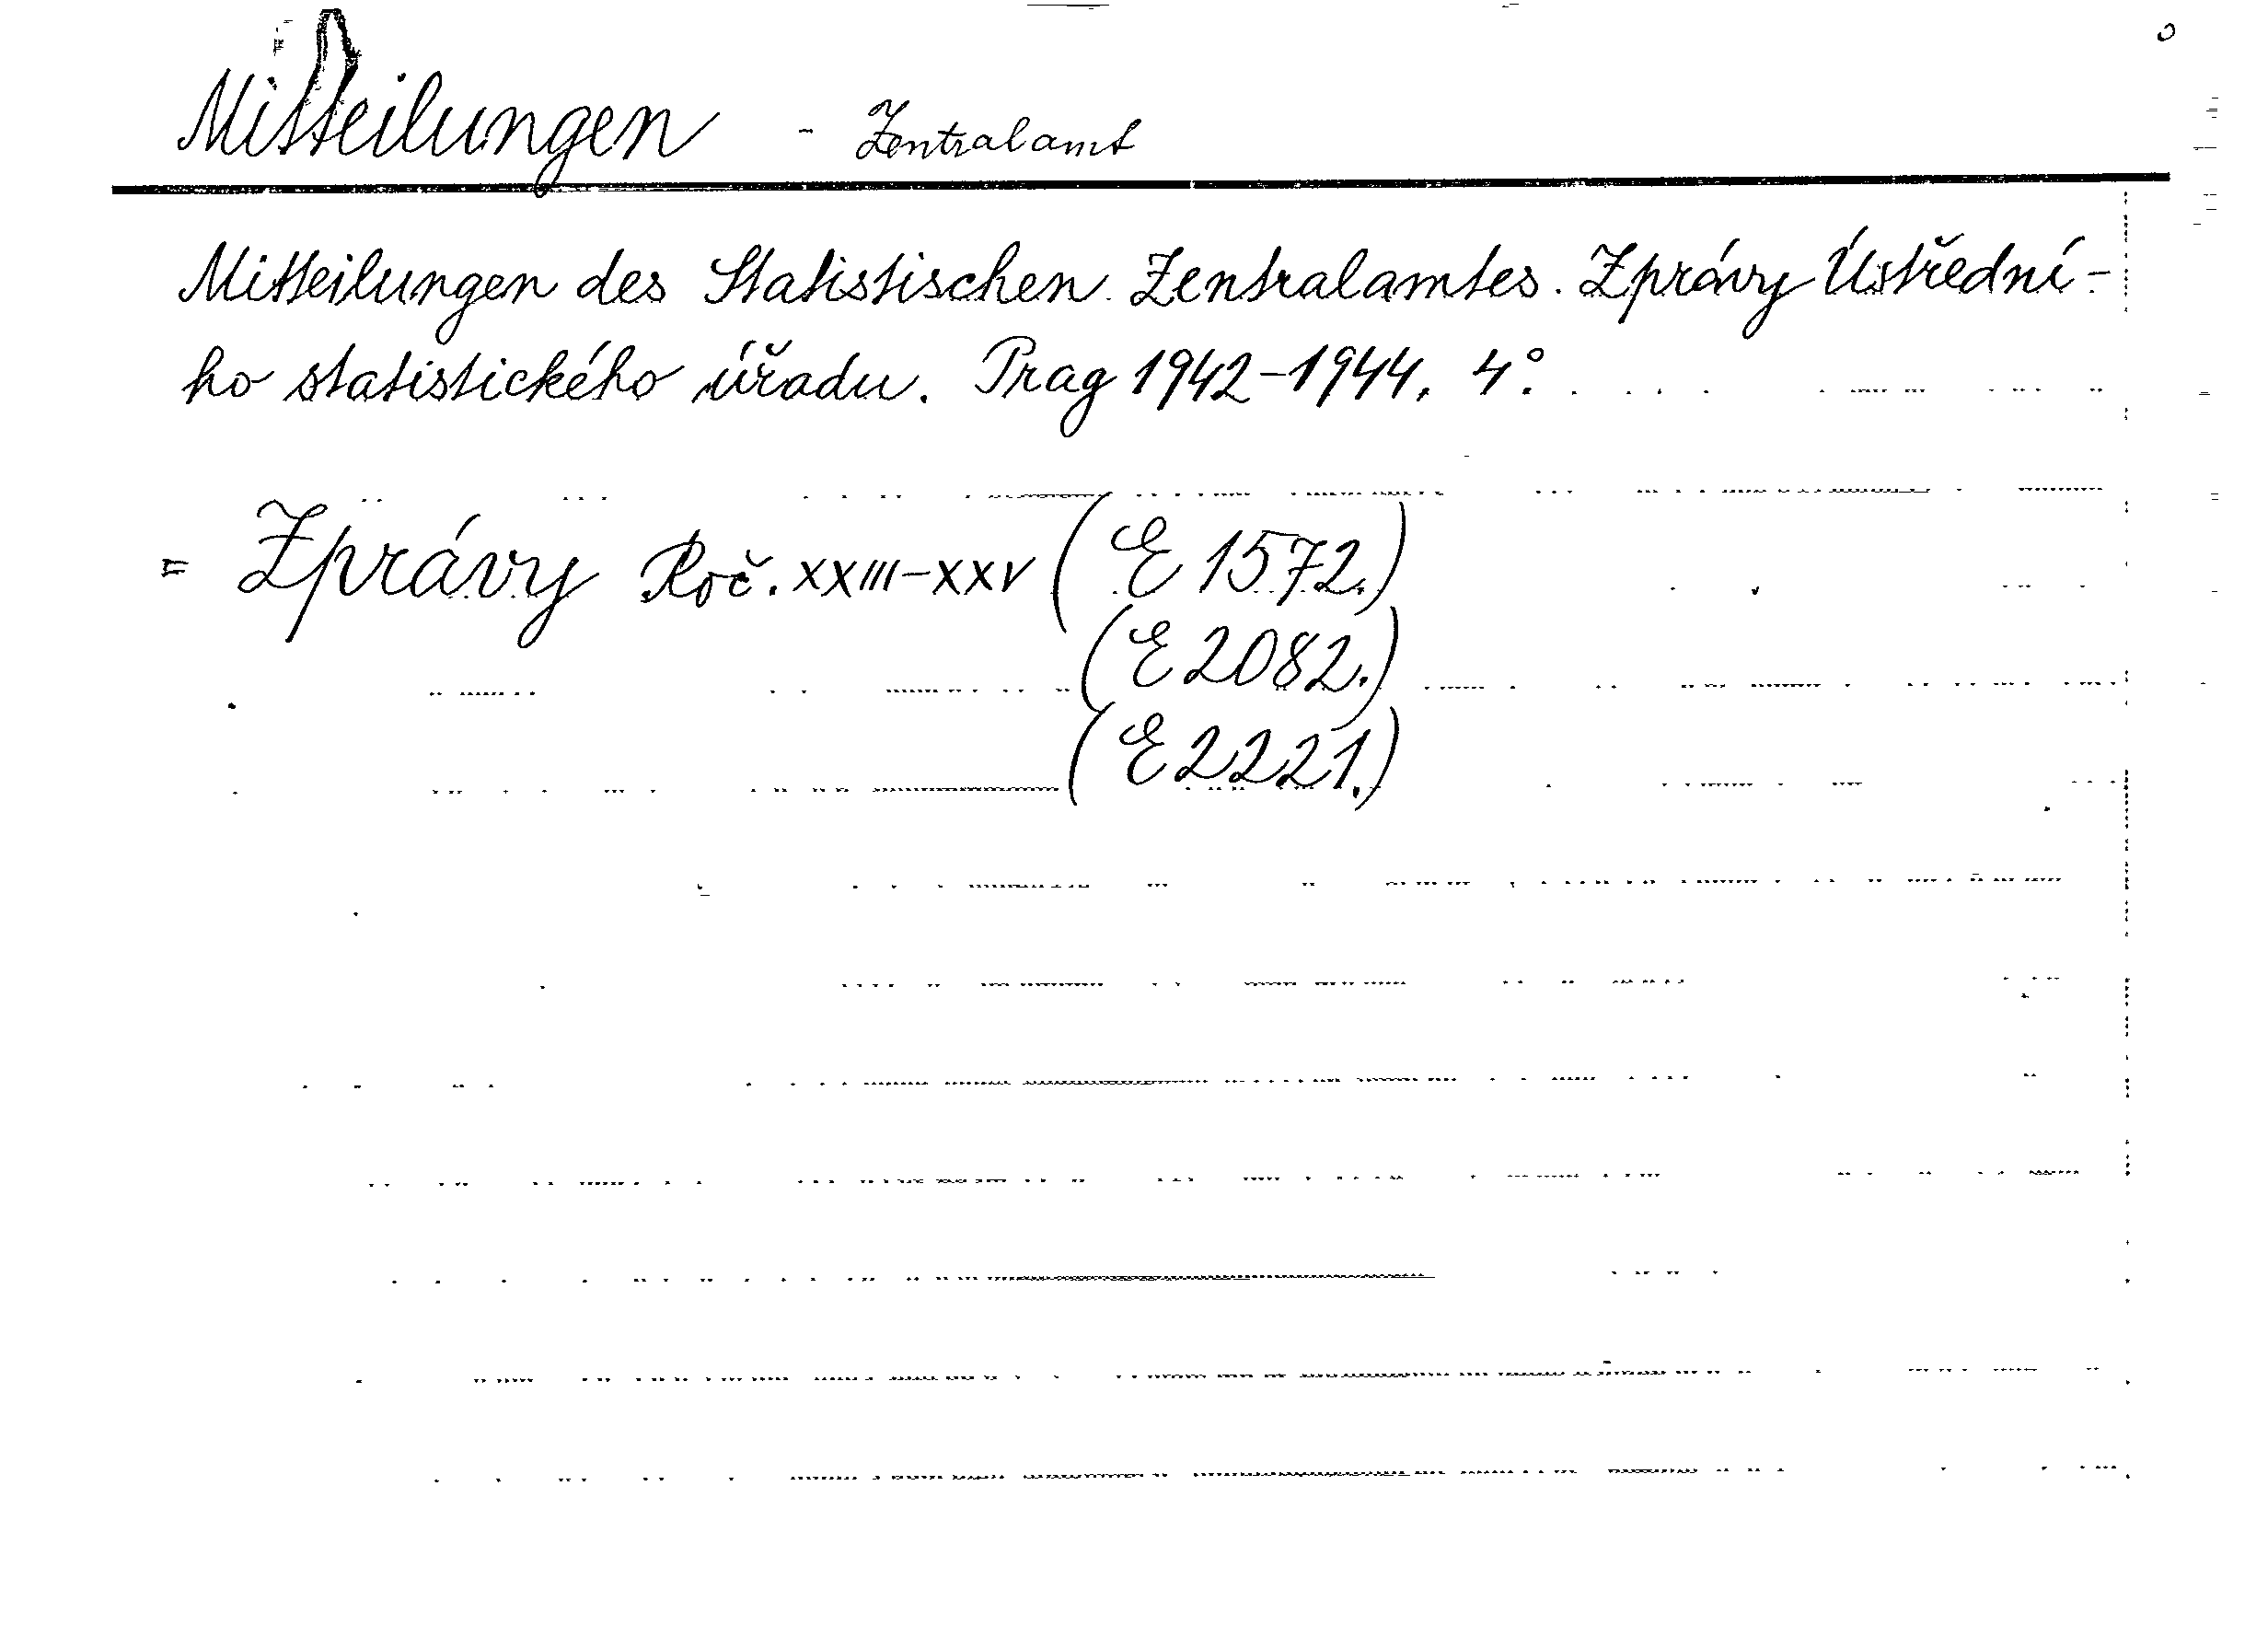 Mitteilungen - Zentralamt
Mitteilungen des Statistischen Zentralamtes. Zprávy Ústřední-
ho statistického úřadu. Prag 1942-1944. 4°.
= Zprávy Roč. XXIII-XXV (E 1572.)
(E 2082.)
(E 2221.)